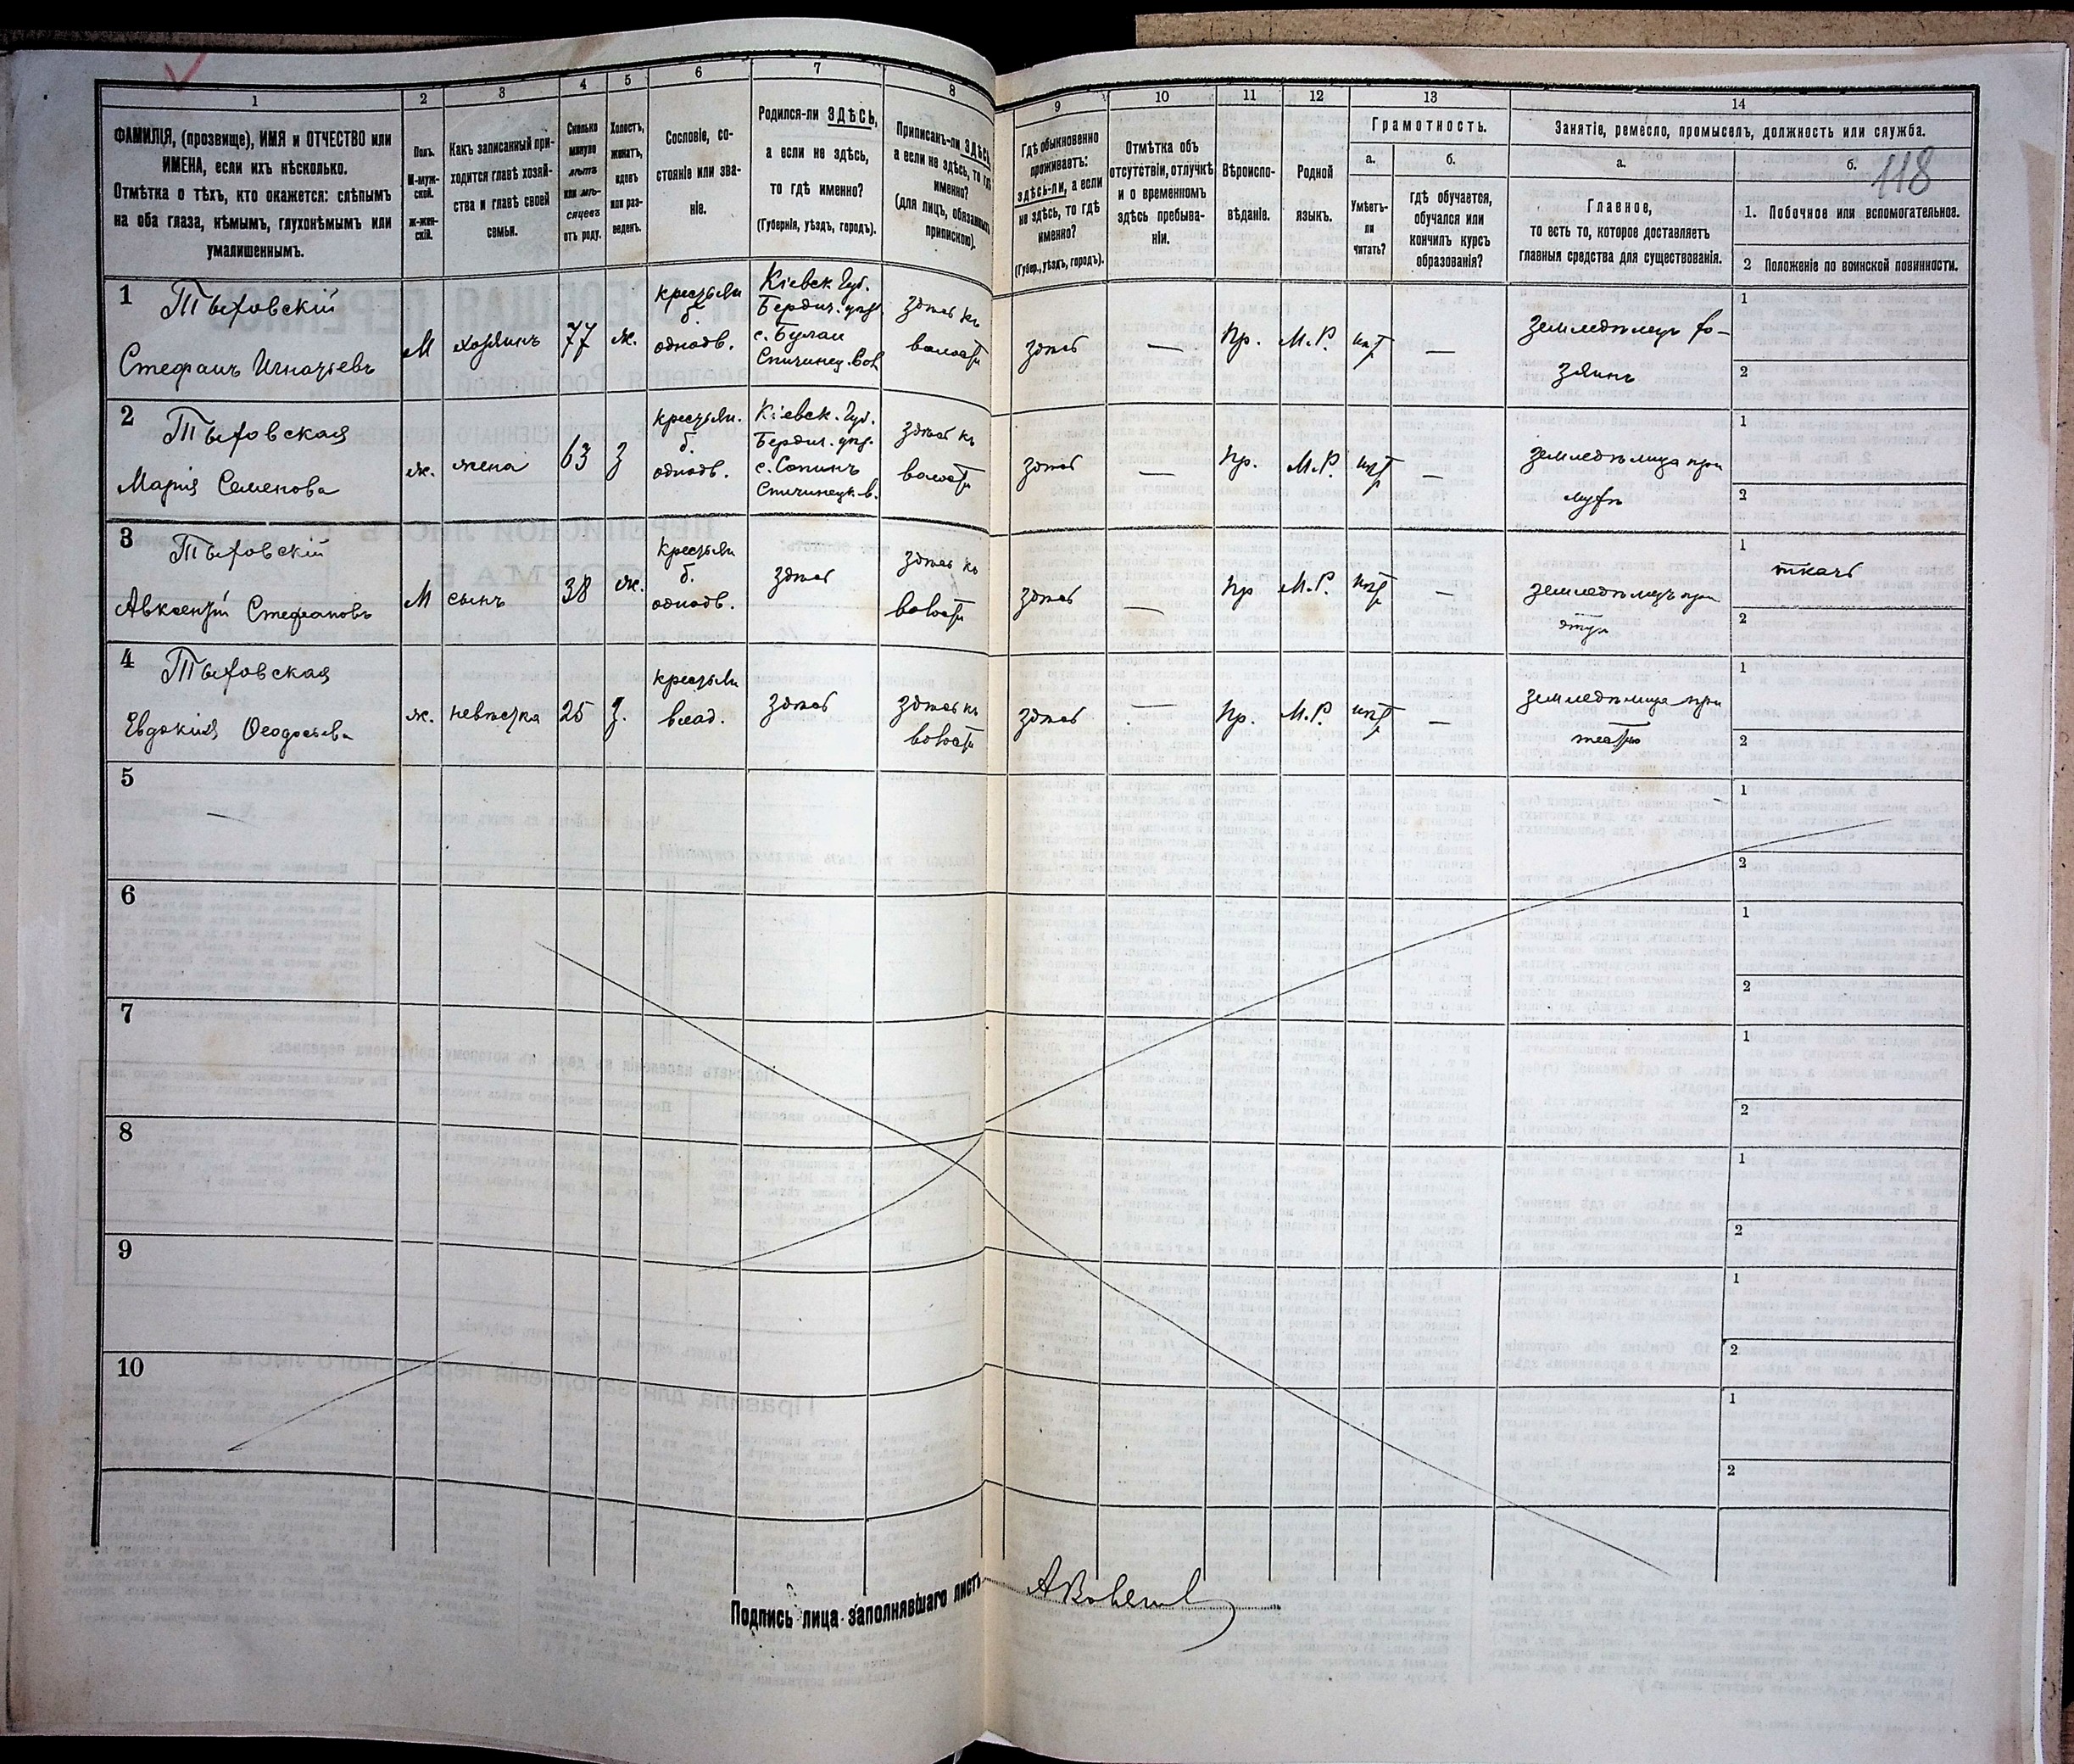 1
2
3
4
5
6
7
8
9
10
11
12
13
14
ФАМИЛІЯ, (прозвище), ИМЯ и ОТЧЕСТВО или
ИМЕНА, если ихъ нѣсколько.
Отмѣтка о тѣхъ, кто окажется: слѣпымъ
на оба глаза, нѣмымъ, глухонѣмымъ или
умалишеннымъ.
Полъ.
М-муж-
ской.
Ж-жен-
скій.
Какъ записанный при-
ходится главѣ хозяй-
ства и главѣ своей
семьи.
Сколько
минуло
лѣтъ
или мѣ-
сяцевъ
отъ роду.
Холостъ,
женатъ,
вдовъ
или раз-
веденъ.
Сословіе, со-
стояніе или зва-
ніе.
Родился-ли ЗДѢСЬ,
а если не здѣсь,
то гдѣ именно?
(Губернія, уѣздъ, городъ).
Приписанъ-ли ЗДѢСЬ,
а если не здѣсь, то гдѣ
именно?
(для лицъ, обязанныхъ
припискою).
Гдѣ обыкновенно
проживаетъ:
здѣсь-ли, а если
не здѣсь, то гдѣ
именно?
(Губер., уѣздъ, городъ).
Отмѣтка объ
отсутствіи, отлучкѣ
и о временномъ
здѣсь пребыва-
ніи.
Вѣроиспо-
вѣданіе.
Родной
языкъ.
Грамотность.
а.
б.
Умѣетъ-
ли
читать?
гдѣ обучается,
обучался или
кончилъ курсъ
образованія?
Занятіе, ремесло, промыселъ, должность или служба.
а.
б.
118
Главное,
то есть то, которое доставляетъ
главныя средства для существованія.
1. Побочное или вспомогательное.
2 Положеніе по воинской повинности.
1
Тыховскій
Стефанъ Игнатьевъ
М
хозяинъ
77
ж.
крестьян
б.
однодв.
Кіевск. Губ.
Бердич. уѣзд.
с. Булаи
Спичинец. Вол
здѣсь къ
волости
здѣсь
—
Пр.
М.Р.
нѣт
—
Земледѣлецъ хо-
зяинъ
1
2
2
Тыховская
Марія Семенова
ж.
жена
63
з
крестьян.
б.
однодв.
Кіевск. Губ.
Бердич. уѣзд.
Спичинецк. в.
здѣсь къ
волости
здѣсь
—
Пр.
М.Р.
нѣт
—
земледѣлица при
мужѣ
1
2
3
Тыховскій
Авксентій Стефановъ
М
сынъ
38
ж.
крестьян
б.
однодв.
здѣсь
здѣсь къ
волости
здѣсь
—
Пр
М.Р.
нѣт
—
земледѣлецъ при
отцѣ
1
ткачъ
2
4
Тыховская
Евдокия Феодосьева
ж.
невѣстка
25
з.
крестьян
влад.
здѣсь
здѣсь къ
волости
здѣсь
—
Пр.
М.Р.
нѣт
—
земледѣлица при
1
2
5
—
1
2
6
1
2
7
1
2
8
1
2
9
1
2
10
1
2
Подпись лица заполнявшаго листъ